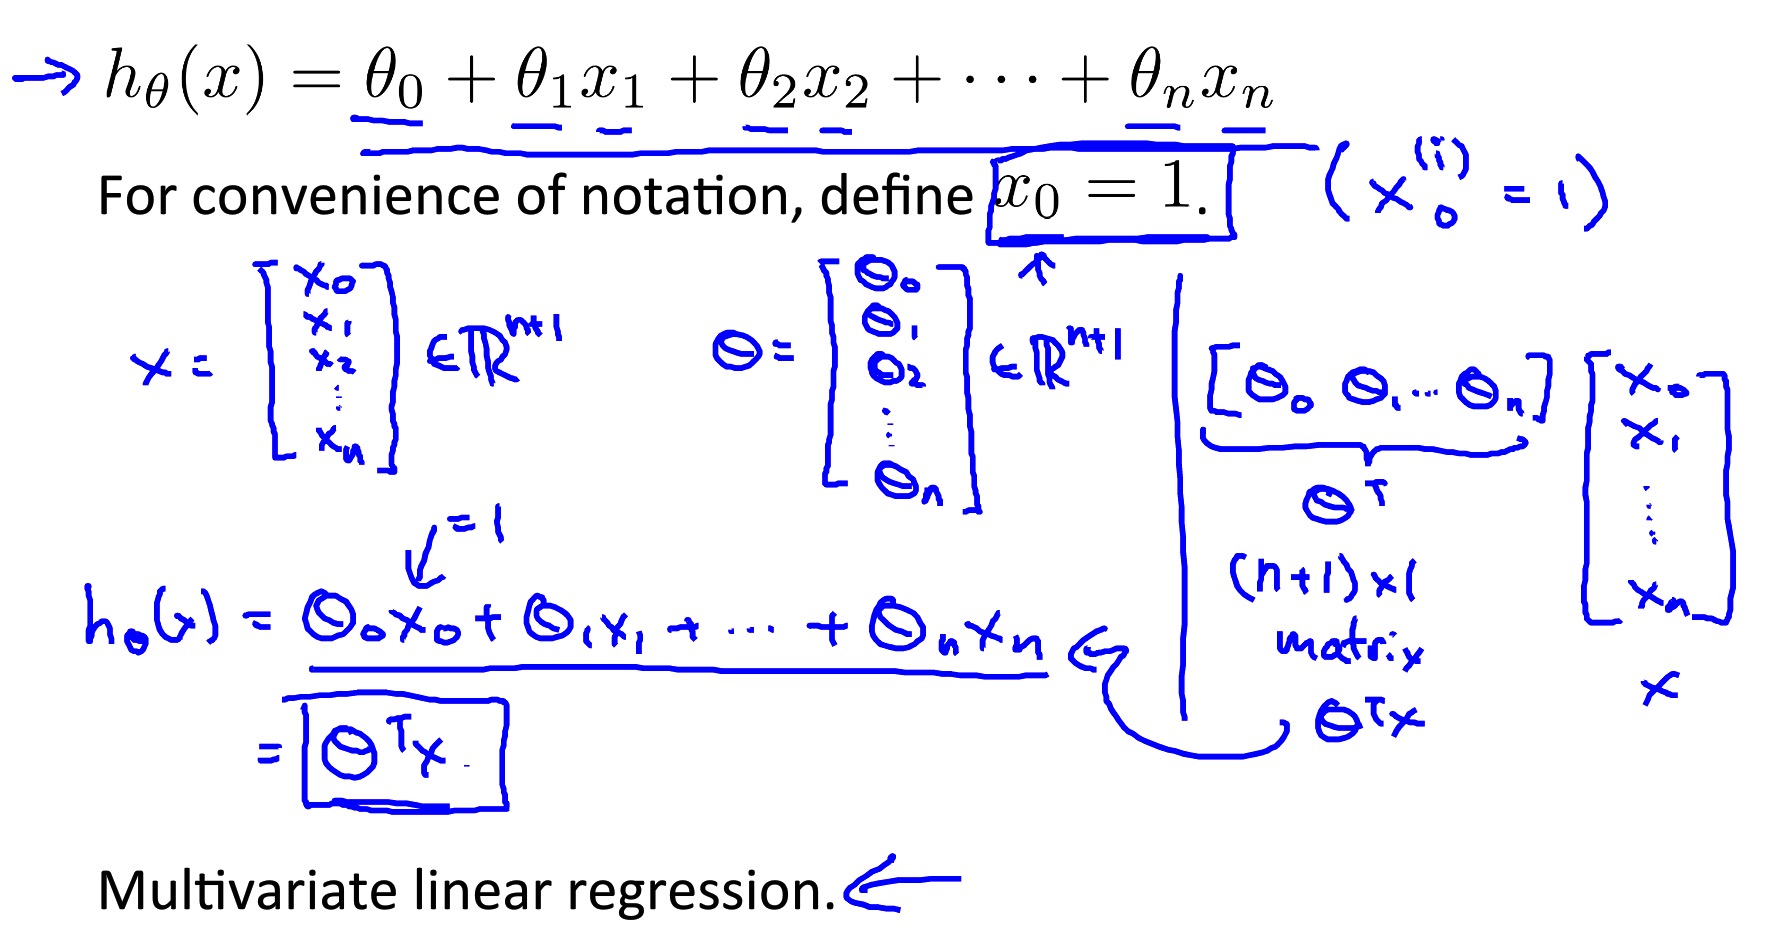 → hθ(x) = θ₀ + θ₁x₁ + θ₂x₂ + ··· + θₙxₙ
For convenience of notation, define x₀ = 1. (x₀⁽ⁱ⁾ = 1)
x = [x₀ x₁ x₂ ⋮ xₙ] ∈ ℝⁿ⁺¹
θ = [θ₀ θ₁ θ₂ ⋮ θₙ] ∈ ℝⁿ⁺¹
= 1
hθ(x) = θ₀x₀ + θ₁x₁ + ··· + θₙxₙ
= θᵀx
[θ₀ θ₁ ··· θₙ] [x₀ x₁ ⋮ xₙ]
θᵀ
(n+1) × 1
matrix
x
θᵀx
Multivariate linear regression. ←